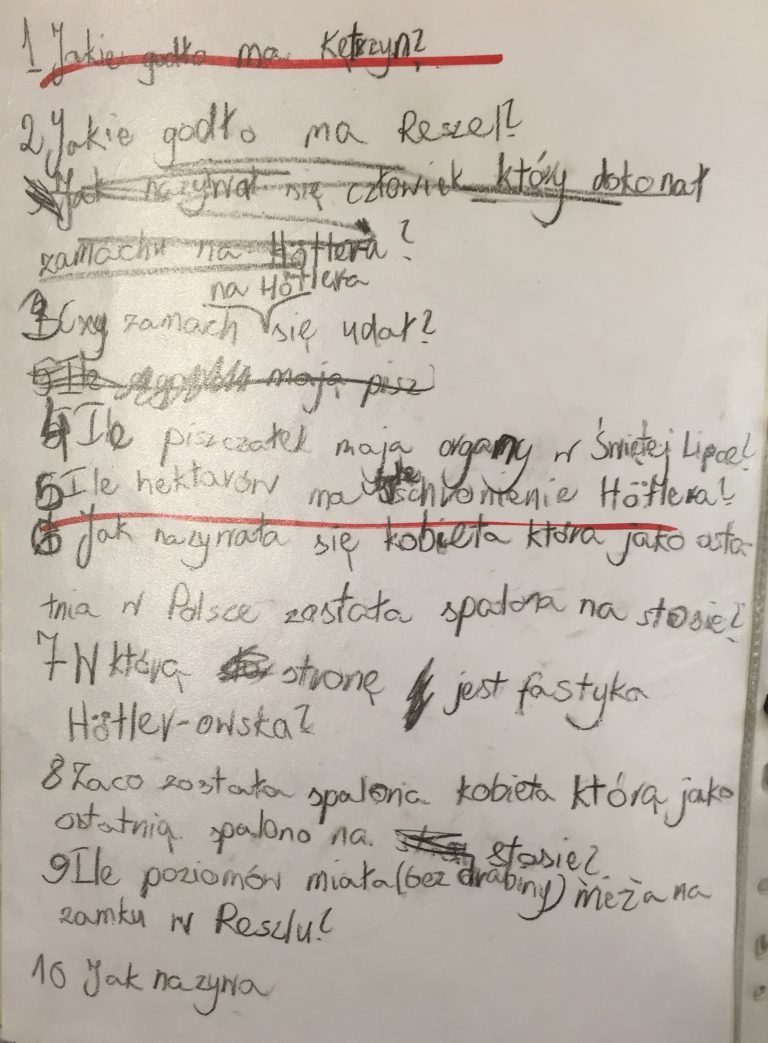 1 Jakie godło ma Kętrzyn?
2 Jakie godło ma Reszel?
Jak nazywał się człowiek który dokonał
zamachu na Höttera?
na Hötlera
3 Czy zamach się udał?
5 Ile mają pisz
4 Ile piszczałek mają organy w Świętej Lipce?
5 Ile hektarów ma schronienie Hötlera?
6 Jak nazywała się kobieta która jako osta-
tnia w Polsce została spalona na stosie?
7 W którą stronę jest fastyka
Hötler-owska?
8 Zaco została spalona kobieta którą jako
ostatnią spalono na stosie?
9 Ile poziomów miała (bez drabiny) mieża na
zamku w Reszlu?
10 Jak nazywa